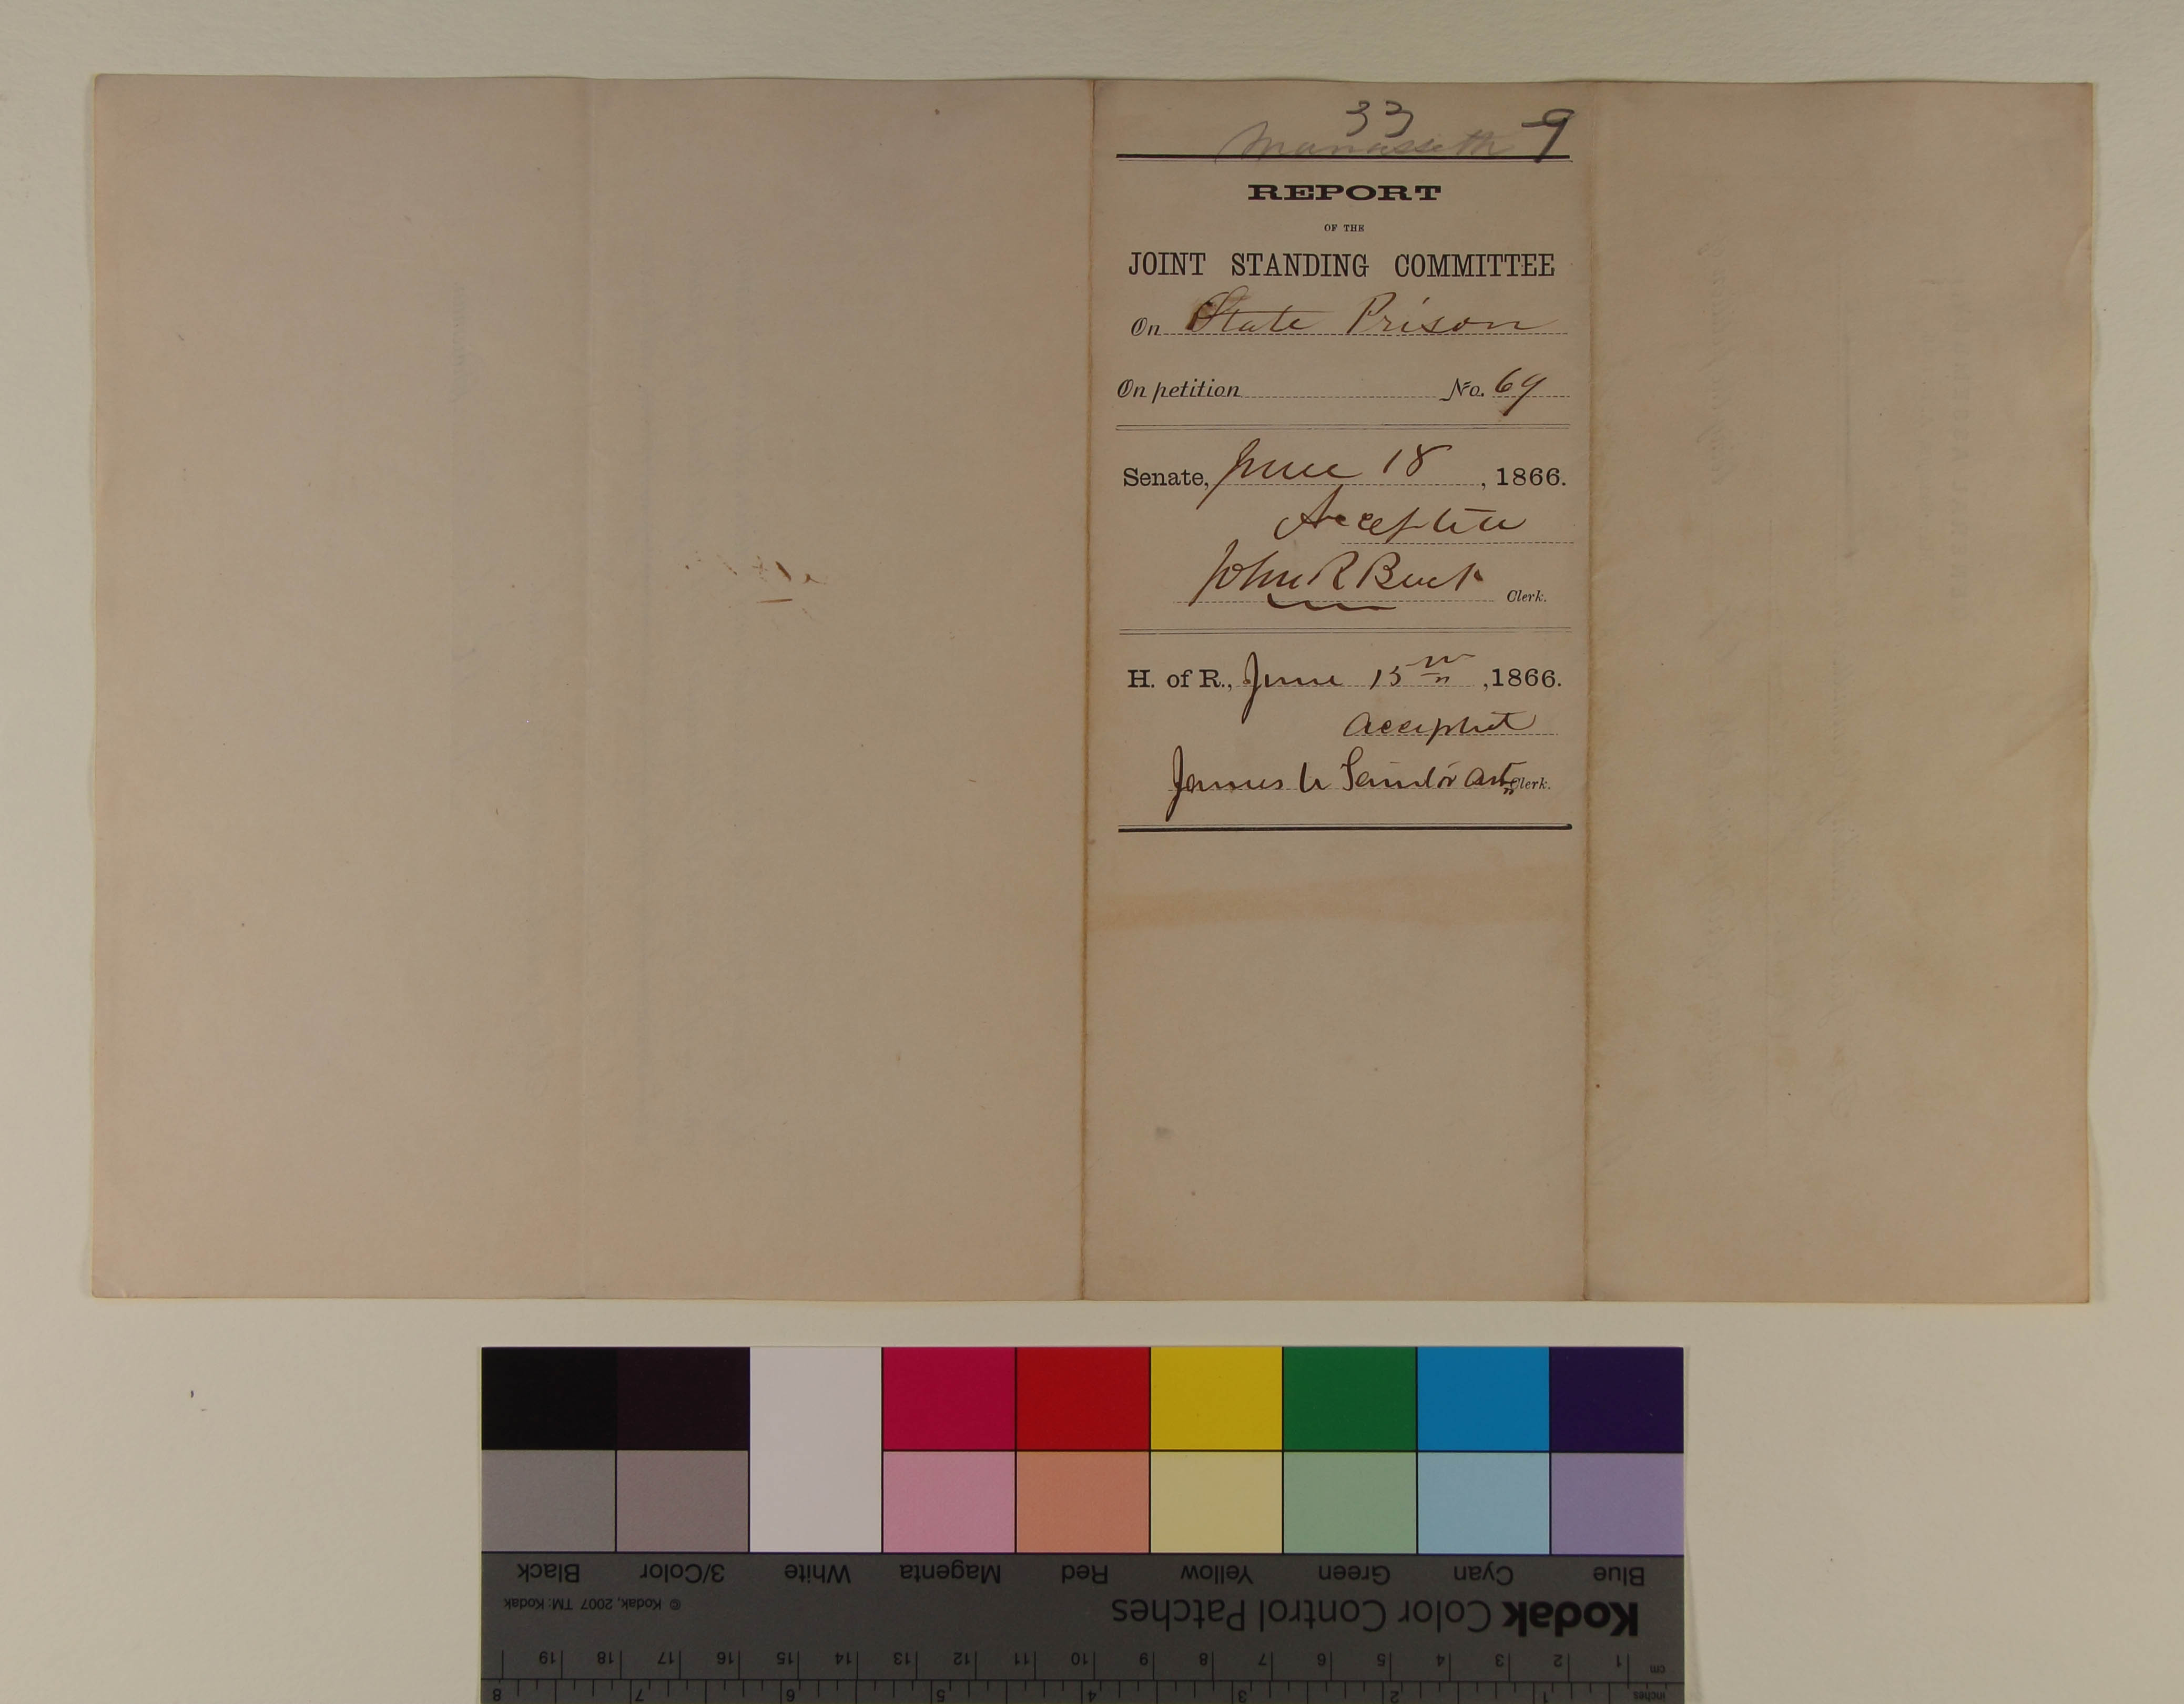 33
Manasseth 9
REPORT
OF THE
JOINT STANDING COMMITTEE
On State Prison
On petition No. 69
Senate, June 18, 1866.
Accepted
John R Buck Clerk.
H. of R., June 15th, 1866.
Accepted
James Clerk.
Black 3/Color White Magenta Red Yellow Green Cyan Blue
© Kodak, 2007 TM: Kodak
Kodak Color Control Patches
cm 1 2 3 4 5 6 7 8 9 10 11 12 13 14 15 16 17 18 19
inches 1 2 3 4 5 6 7 8